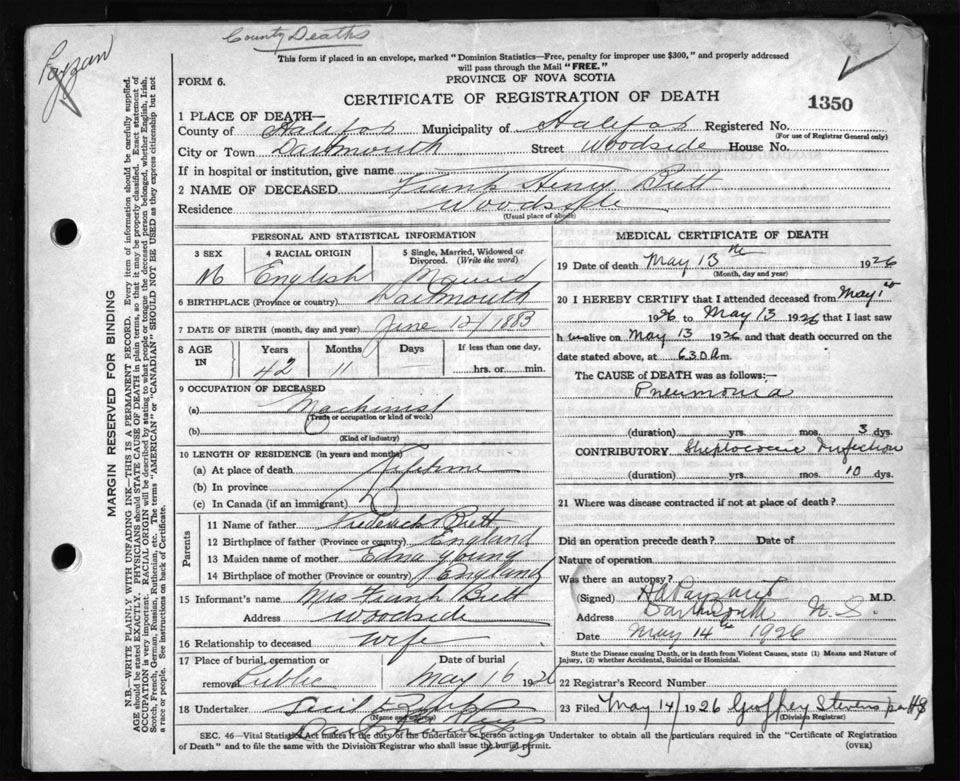 County Deaths
This form if placed in an envelope, marked "Dominion Statistics—Free, penalty for improper use $300," and properly addressed
will pass through the Mail "FREE."
FORM 6.
PROVINCE OF NOVA SCOTIA
CERTIFICATE OF REGISTRATION OF DEATH
1350
1 PLACE OF DEATH—
County of Halifax Municipality of Halifax Registered No.
(For use of Registrar General only)
City or Town Dartmouth Street Woodside House No.
If in hospital or institution, give name
2 NAME OF DECEASED Frank Henry Brett
Residence Woodside
(Usual place of abode)
PERSONAL AND STATISTICAL INFORMATION
3 SEX 4 RACIAL ORIGIN 5 Single, Married, Widowed or
Divorced. (Write the word)
M English Married
6 BIRTHPLACE (Province or country) Dartmouth
7 DATE OF BIRTH (month, day and year) June 12/1883
8 AGE IN Years Months Days If less than one day,
42 11 hrs. or min.
9 OCCUPATION OF DECEASED
(a) Machinist
(Trade or occupation or kind of work)
(b)
(Kind of industry)
10 LENGTH OF RESIDENCE (in years and months)
(a) At place of death lifetime
(b) In province
(c) In Canada (if an immigrant)
Parents
11 Name of father Frederick Brett
12 Birthplace of father (Province or country) England
13 Maiden name of mother Edna Young
14 Birthplace of mother (Province or country) England
15 Informant's name Mrs Frank Brett
Address Woodside
16 Relationship to deceased wife
17 Place of burial, cremation or Date of burial
removal Public May 16 1926
18 Undertaker
(Name and address)
MEDICAL CERTIFICATE OF DEATH
19 Date of death May 13th 1926
(Month, day and year)
20 I HEREBY CERTIFY that I attended deceased from May 1st
1926 to May 13 1926 that I last saw
h im alive on May 13 1926 and that death occurred on the
date stated above, at 6.30 a.m.
The CAUSE of DEATH was as follows:—
Pneumonia
(duration) yrs. mos. 3 dys.
CONTRIBUTORY Streptococcic Infection
(duration) yrs. mos. 10 ds.
21 Where was disease contracted if not at place of death?
Did an operation precede death? Date of
Nature of operation
Was there an autopsy?
(Signed) M.D.
Address Dartmouth N.S.
Date May 14th 1926
State the Disease causing Death, or in death from Violent Causes, state (1) Means and Nature of
Injury, (2) whether Accidental, Suicidal or Homicidal.
22 Registrar's Record Number
23 Filed May 14/1926 Geoffrey Stevens
(Division Registrar)
SEC. 46—Vital Statistics Act it is the duty of the Undertaker or person acting as Undertaker to obtain all the particulars required in the "Certificate of Registration
of Death" and to file the same with the Division Registrar who shall issue the burial permit.
(OVER)
MARGIN RESERVED FOR BINDING
N.B.—WRITE PLAINLY WITH UNFADING INK—THIS IS A PERMANENT RECORD. Every item of information should be carefully supplied.
AGE should be stated EXACTLY. PHYSICIANS should STATE CAUSE OF DEATH in plain terms, so that it may be properly classified. Exact statement of
OCCUPATION is very important. RACIAL ORIGIN will be described by stating to what people or tongue the deceased person belonged, whether English, Irish,
Scotch, French, German, Russian, Ruthenian, etc. The terms "AMERICAN" or "CANADIAN" SHOULD NOT BE USED as they express citizenship but not
a race or people. See instructions on back of Certificate.